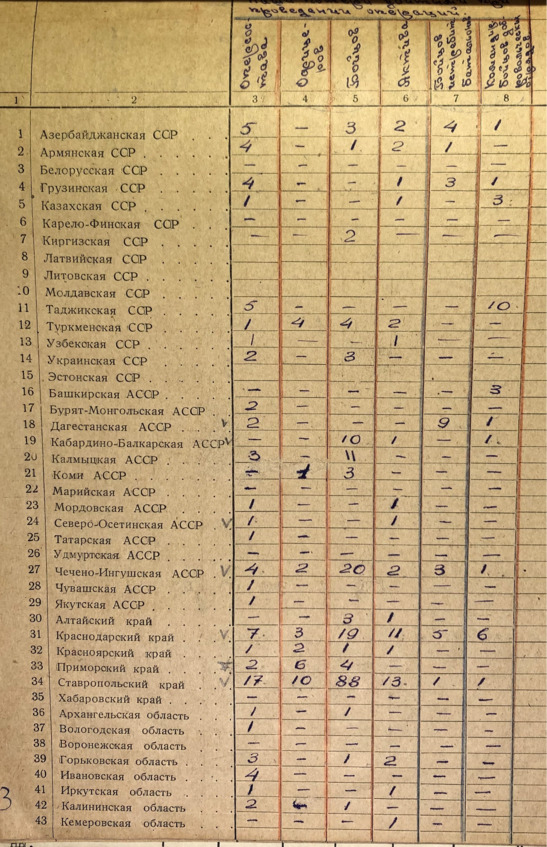 проведении операций
Оперсос-тава | Офице-ров | Бойцов | Актива | Бойцов истребит. Батальонов | Команд. и Бойцов
1 2 3 4 5 6 7 8
1 Азербайджанская ССР 5 — 3 2 4 1
2 Армянская ССР 4 — 1 2 1 —
3 Белорусская ССР — — — — — —
4 Грузинская ССР 4 — — 1 3 1
5 Казахская ССР 1 — — 1 — 3
6 Карело-Финская ССР — — — — — —
7 Киргизская ССР — — 2 — — —
8 Латвийская ССР
9 Литовская ССР
10 Молдавская ССР
11 Таджикская ССР 5 — — — — 10
12 Туркменская ССР 1 4 4 2 — —
13 Узбекская ССР 1 — — 1 — —
14 Украинская ССР 2 — 3 — — —
15 Эстонская ССР
16 Башкирская АССР — — — — — 3
17 Бурят-Монгольская АССР 2 — — — — —
18 Дагестанская АССР 2 — — — 9 1
19 Кабардино-Балкарская АССР — — 10 1 — 1
20 Калмыцкая АССР 3 — 11 — — —
21 Коми АССР — 1 3 — — —
22 Марийская АССР — — — — — —
23 Мордовская АССР 1 — — 1 — —
24 Северо-Осетинская АССР 1 — — 1 — —
25 Татарская АССР 1 — — — — —
26 Удмуртская АССР — — — — — —
27 Чечено-Ингушская АССР 4 2 20 2 3 1
28 Чувашская АССР 1 — — — — —
29 Якутская АССР 1 — — — — —
30 Алтайский край — — 3 1 — —
31 Краснодарский край 7 3 19 11 5 6
32 Красноярский край 1 2 1 1 — —
33 Приморский край 2 6 4 — — —
34 Ставропольский край 17 10 88 13 1 1
35 Хабаровский край — — — — — —
36 Архангельская область 1 — 1 — — —
37 Вологодская область 1 — — — — —
38 Воронежская область — — — — — —
39 Горьковская область 3 — 1 2 — —
40 Ивановская область 4 — — — — —
41 Иркутская область 1 — — 1 — —
42 Калининская область 2 — 1 — — —
43 Кемеровская область — — — 1 — —
3